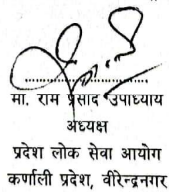 मा. राम प्रसाद उपाध्याय
अध्यक्ष
प्रदेश लोक सेवा आयोग
कर्णाली प्रदेश, वीरेन्द्रनगर